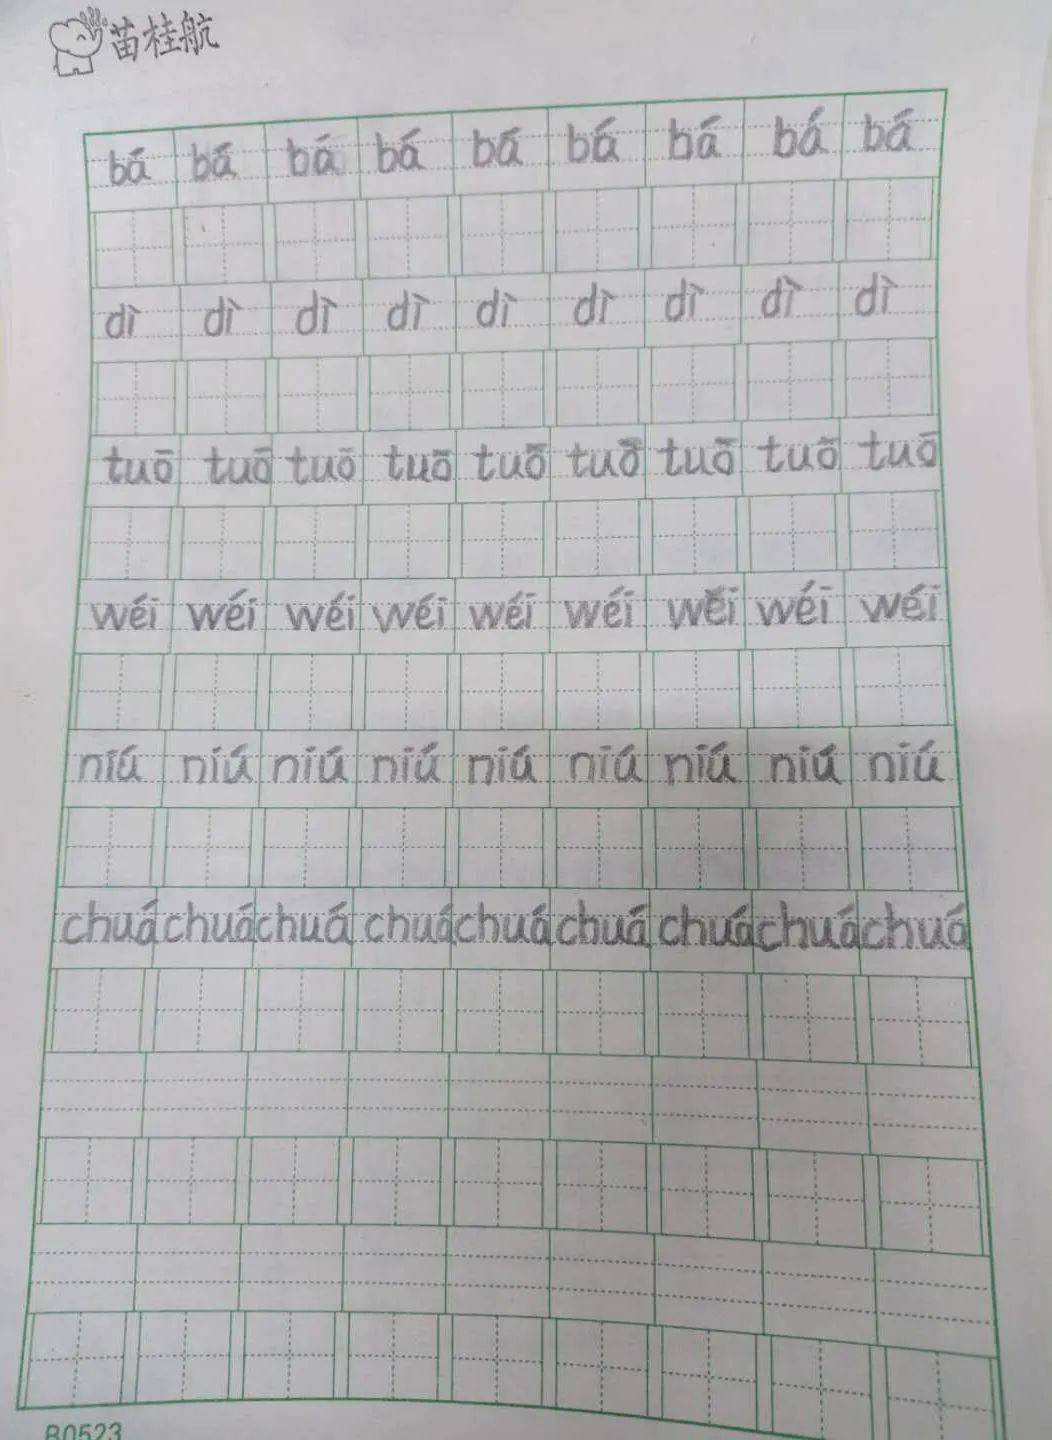 苗桂航
bá bá bá bá bá bá bá bá bá
dì dì dì dì dì dì dì dì dì
tuō tuō tuō tuō tuō tuō tuō tuō tuō
wéi wéi wéi wéi wéi wéi wéi wéi wéi
niú niú niú niú niú niú niú niú niú
chuá chuá chuá chuá chuá chuá chuá chuá chuá
B0523